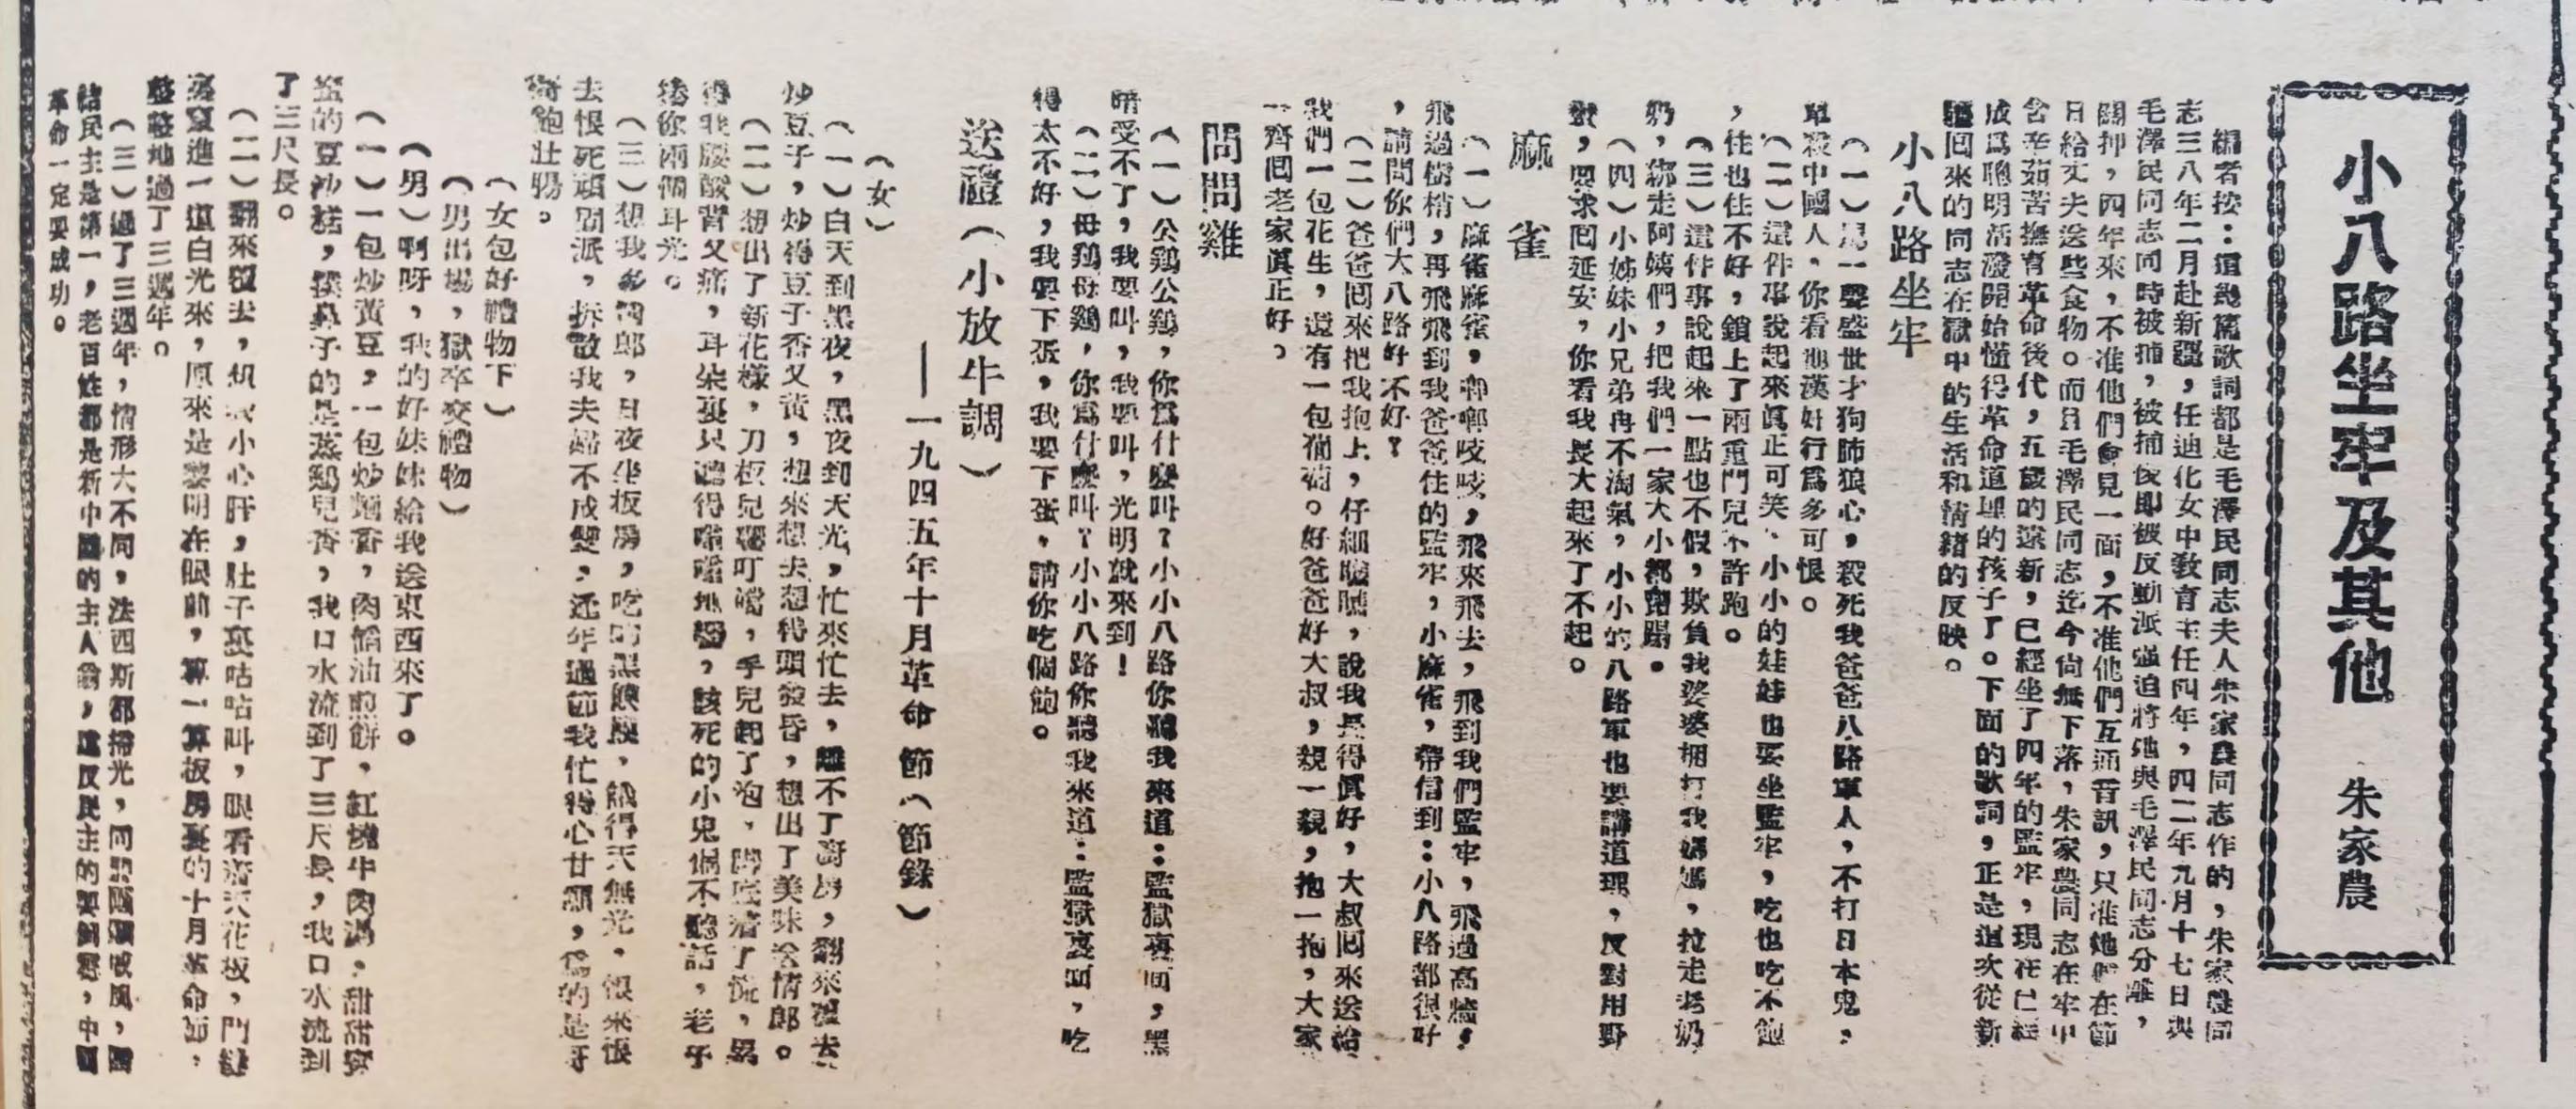 小八路坐牢及其他　朱家農
編者按：這幾篇歌詞都是毛澤民同志夫人朱家農同志作的，朱家農同
志三八年二月赴新疆，任迪化女中教育主任四年，四二年九月十七日與
毛澤民同志同時被捕，被捕後即被反動派強迫將她與毛澤民同志分離，
關押，四年來，不准他們會見一面，不准他們互通音訊，只准她們在節
日給丈夫送些食物。而且毛澤民同志迄今尚無下落，朱家農同志在牢中
含辛茹苦撫育革命後代，五歲的遠新，已經坐了四年的監牢，現在已經
成爲聰明活潑開始懂得革命道理的孩子了。下面的歌詞，正是這次從新
疆回來的同志在獄中的生活和情緒的反映。
小八路坐牢
（一）罵一聲盛世才狗肺狼心，殺死我爸爸八路軍人，不打日本鬼，
單殺中國人，你看那漢奸行爲多可恨。
（二）這件事說起來眞正可笑，小小的娃娃也要坐監牢，吃也吃不飽
，住也住不好，鎖上了兩重門兒不許跑。
（三）這件事說起來一點也不假，欺負我婆婆捆打我媽媽，拉走老奶
奶，綁走阿姨們，把我們一家大小都蹧蹋。
（四）小姊妹小兄弟再不淘氣，小小的八路軍也要講道理，反對用野
蠻，要求回延安，你看我長大起來了不起。
麻雀
（一）麻雀麻雀，唧唧吱吱，飛來飛去，飛到我們監牢，飛過高牆，
飛過樹梢，再飛飛到我爸爸住的監牢，小麻雀，帶信到：小八路都很好
，請問你們大八路好不好？
（二）爸爸回來把我抱上，仔細瞧瞧，說我長得眞好，大叔回來送給
我們一包花生，還有一包葡萄。好爸爸好大叔，親一親，抱一抱，大家
一齊回老家眞正好。
問問雞
（一）公鷄公鷄，你爲什麼叫？小小八路你聽我來道：監獄裏面，黑
暗受不了，我要叫，我要叫，光明就來到！
（二）母鷄母鷄，你爲什麼叫？小小八路你聽我來道：監獄裏面，吃
得太不好，我要下蛋，我要下蛋，請你吃個飽。
送禮（小放牛調）
——一九四五年十月革命節（節錄）
（女）
（一）白天到黑夜，黑夜到天光，忙來忙去，離不了廚房，翻來覆去
炒豆子，炒得豆子香又黃，想來想去想得頭發昏，想出了美味送情郎。
（二）想出了新花樣，刀板兒響叮噹，手兒起了泡，脚底着了慌，累
得我腰酸背又痛，耳朵裏只聽得嗡嗡地響，該死的小鬼偏不聽話，老子
捲你兩個耳光。
（三）想我多情郎，日夜坐板房，吃的黑饃饃，餓得天無光，恨來恨
去恨死頑固派，拆散我夫婦不成雙，逐年過節我忙得心甘願，爲的是哥
哥飽壯腸。
（女包好禮物下）
（男出場，獄卒交禮物）
（男）啊呀，我的好妹妹給我送東西來了。
（一）一包炒黃豆，一包炒麵香，肉餡油煎餅，紅燒牛肉湯，甜甜蜜
蜜的豆沙糕，撲鼻子的是蒸鷄兒香，我口水流到了三尺長，我口水流到
了三尺長。
（二）翻來覆去，抓我小心肝，肚子裏咕咕叫，眼看着天花板，門縫
裏竄進一道白光來，原來是黎明在眼前，算一算板房裏的十月革命節，
整整地過了三週年。
（三）過了三週年，情形大不同，法西斯都掃光，同盟國乘破風，團
結民主是第一，老百姓都是新中國的主人翁，中國
革命一定要成功。